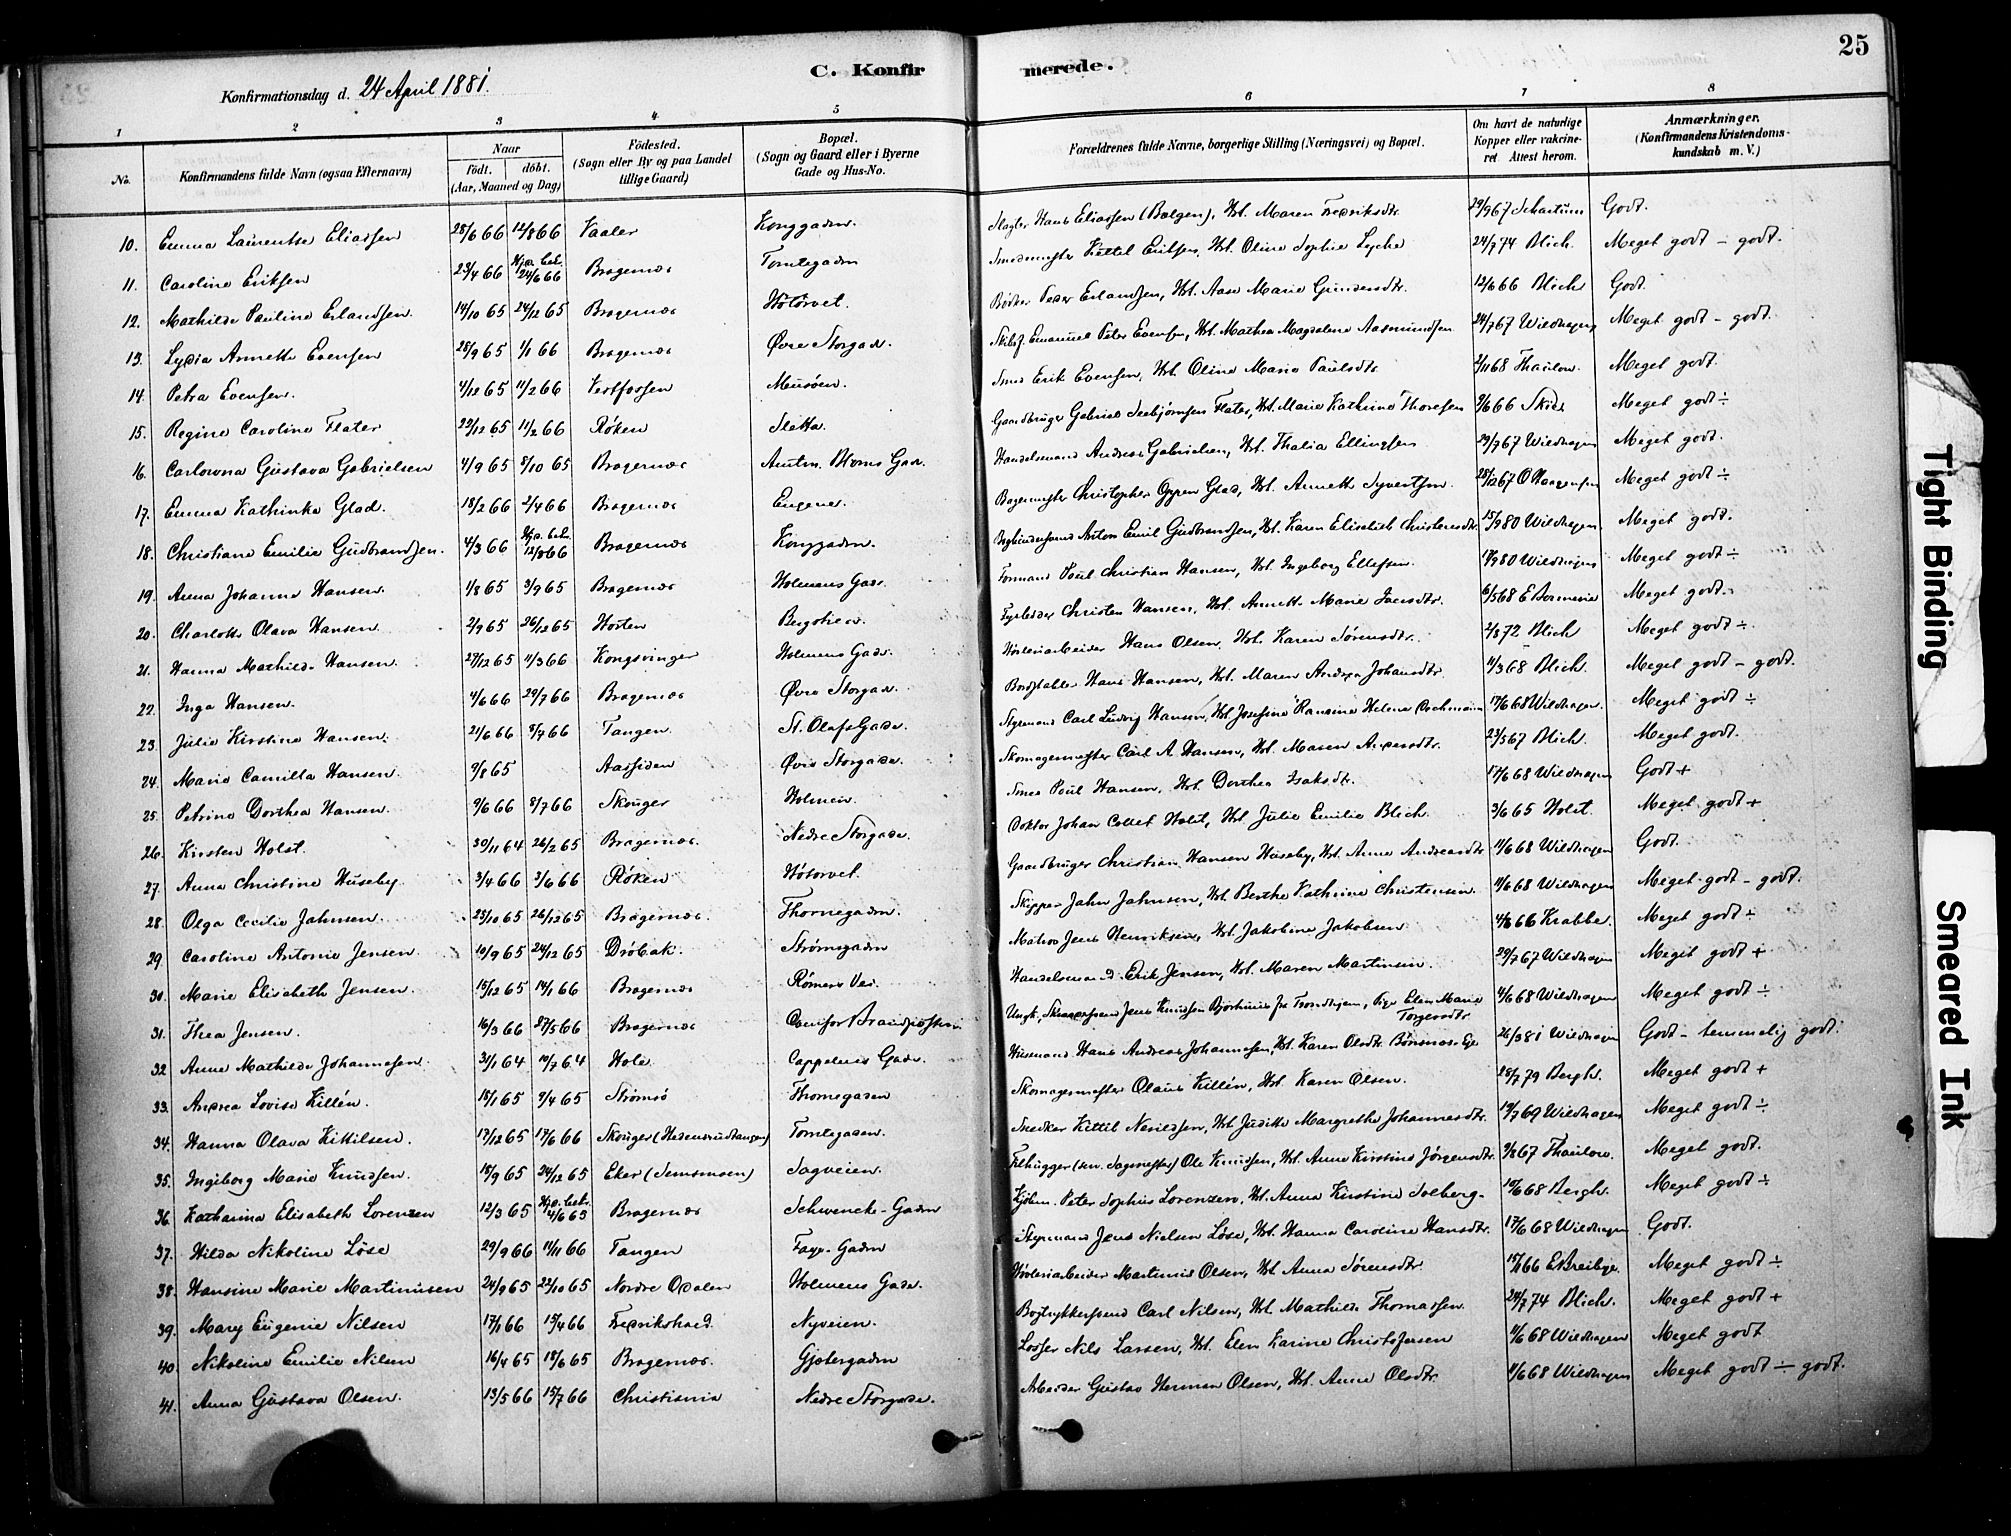 25
C. Konfirmerede.
Konfirmationsdag d. 24 April 1881.
1 2 3 4 5 6 7 8
No. Konfirmandens fulde Navn (ogsaa Efternavn) Naar Født. døbt. (Aar, Maaned og Dag) Födested. (Sogn eller By og paa Landet tillige Gaard) Bopæl. (Sogn og Gaard eller i Byerne Gade og Hus-No. Forældrenes fulde Navne, borgerlige Stilling (Næringsvei) og Bopæl. Om havt de naturlige Kopper eller vakcineret. Attest herom. Anmærkninger. (Konfirmandens Kristendomskundskab m. V.)
10. Emma Laurentse Eliassen 28/6 66 12/8 66 Vaaler Konggaden. Slagter Hans Eliassen (Bolgen), Hst. Maren Fredriksdtr. 29/9 67 Schartum Godt.
11. Caroline Eriksen 23/4 66 Hj.d. bek. 24/6 66 Bragernæs Tomtegaden Smedmester Kittel Eriksen, Hst. Oline Sophie Lyche 24/7 74 Blich. Meget godt - godt.
12. Mathilde Pauline Erlandsen 14/10 65 24/12 65 Bragernæs Høtorvet. Bødker Peder Erlandsen, Hst. Aase Marie Gundersdtr. 12/6 66 Blich Godt.
13. Lydia Annette Evensen 28/9 65 1/1 66 Bragernæs Øvre Storgade. Skibsf. Emanuel Peter Evensen, Hst. Mathea Magdalene Aasmundsen 24/7 67 Wildhagen Meget godt - godt.
14. Petra Evensen. 4/12 65 11/2 66 Vestfossen Musøen. Smed Erik Evensen, Hst. Oline Marie Paulsdtr. 2/11 68 Thaulow. Meget godt.
15. Regine Caroline Flater 29/12 65 11/2 66 Røken Sletta. Gaardbruger Gabriel Seebjørnsen Flater, Hst. Marie Kathrine Thoresen 9/6 66 Meget godt ÷
16. Carlowna Gustava Gabrielsen 4/9 65 8/10 65 Bragernæs Amtm. Bloms Gade. Handelsmand Andreas Gabrielsen, Hst. Thalia Ellingsen 29/7 67 Wildhagen Meget godt.
17. Emma Kathinka Glad. 18/2 66 2/4 66 Bragernæs Engene. Bagermester Christopher Glad, Hst. Annette Syvertsen 28/12 67 Meget godt ÷
18. Christiane Emilie Gudbrandsen. 4/3 66 Hj.d. bek. 12/8 66 Bragernæs Konggaden. Anton Emil Gudbrandsen, Hst. Karen Elisabeth Christensdtr. 15/9 80 Wildhagen Meget godt.
19. Anna Johanne Hansen 1/8 65 3/9 65 Bragernæs Holmens Gade. Formand Poul Christian Hansen, Hst. Ingeborg Ellefsen. 17/9 80 Wildhagen Meget godt ÷
20. Charlotte Olava Hansen 2/9 65 26/12 65 Horten Bergstien. Fyrbøder Christen Hansen, Hst. Annette Marie 6/5 68 Meget godt.
21. Hanna Mathilde Hansen. 27/12 65 11/3 66 Kongsvinger Holmens Gade. Høvleriarbeider Hans Olsen, Hst. Karen Sørensdtr. 2/8 72 Blich Meget godt ÷
22. Inga Hansen. 4/6 66 29/7 66 Bragernæs Øvre Storgade. Bordstabler Hans Hansen, Hst. Maren Andrea Johansdtr. 11/3 68 Blich. Meget godt - godt.
23. Julie Kirstine Hansen. 21/6 66 8/7 66 Tangen St. Olafs Gade. Styrmand Carl Ludvig Hansen, Hst. Josefine Ransine Helene 17/6 68 Wildhagen. Meget godt ÷
24. Marie Camilla Hansen. 9/8 65 Aassiden Øvre Storgade. Skomagermester Carl A. Hansen, Hst. Maren Andersdtr. 23/5 67 Blich. Meget godt.
25. Petrine Dorthea Hansen. 9/6 66 8/7 66 Skouger Holmen. Smed Poul Hansen, Hst. Dorthea Isaksdtr. 17/6 68 Wildhagen Godt +
26. Kirsten Holst. 30/11 64 26/2 65 Bragernæs. Nedre Storgade. Doktor Johan Collet Holst, Hst. Julie Emilie Blich. 3/6 65 Holst. Meget godt +
27. Anna Christine Huseby 3/4 66 3/6 66 Røken Høtorvet. Gaardbruger Christian Hansen Huseby, Hst. Anne Andreasdtr. 11/6 68 Wildhagen Godt.
28. Olga Cecilie Jahnsen. 23/10 65 26/12 65 Bragernæs. Thornegaden. Skipper Jahn Jahnsen, Hst. Berthe Kathrine Christensen. 11/6 68 Wildhagen Meget godt - godt.
29. Caroline Antonie Jensen. 10/9 65 24/12 65 Drøbak. Strømsgaden Matros Jens Henriksen, Hst. Jakobine Jakobsen 4/6 66 Krabbe. Meget godt ÷
30. Marie Elisabeth Jensen. 15/12 65 14/1 66 Bragernæs Rømers Vei. Handelsmand Erik Jensen, Hst. Maren Martinsen. 29/7 67 Wildhagen Meget godt +
31. Thea Jensen. 16/3 66 27/5 66 Bragernæs Ungk. Jens Knudsen fra Trondhjem, Pige Elen Marie Torgersdtr. 4/6 68 Wildhagen Meget godt ÷
32. Anne Mathilde Johannesen. 31/1 64 10/7 64 Hole. Cappelens Gade. Husmand Hans Andreas Johannesen, Hst. Karen Olsdtr. Bønsnæs-Eje 26/3 81 Wildhagen Godt - temmelig godt.
33. Andrea Lovise Killén. 18/1 65 9/4 65 Strømsø Thornegaden Skomagermester Olaus Killén, Hst. Karen Olsen. 28/7 79 Bergh. Meget godt +
34. Hanna Olava Kittilsen. 17/12 65 17/6 66 Skouger (Hedensrudtangen) Tomtegaden. Snedker Kittil Nerildsen, Hst. Judithe Margrethe Johannesdtr. 19/7 69 Wildhagen Meget godt ÷
35. Ingeborg Marie Knudsen. 18/9 65 24/12 65 Eker (Semsmoen) Sagveien. Flhugger (sen. Sagmester) Ole Knudsen, Hst. Anne Kirstine Jørgensdtr. 9/8 67 Thaulow. Meget godt.
36. Katharina Elisabeth Lorenzen 12/3 65 Hj.d. bek. 4/6 65 Bragernæs Schwencke-Gaden Kjøbm. Peter Sophus Lorenzen, Hst. Anna Kirstine Solberg. 10/6 68 Bergh. Meget godt ÷
37. Hilda Nikoline Løse. 29/9 66 11/11 66 Tangen Faye-Gaden Styrmand Jens Nielsen Løse, Hst. Hanna Caroline Hansdtr. 17/6 68 Wildhagen Godt.
38. Hansine Marie Martinusen 24/9 65 22/10 65 Nordre Odalen Holmens Gade. Høvleriarbeider Martinus Olsen, Hst. Anna Sørensdtr. 15/7 66 Meget godt ÷
39. Mary Eugenie Nilsen 17/1 66 15/4 66 Fredrikshald. Nyveien. Bogtrykkersvend Carl Nilsen, Hst. Mathilde Thomassen. 24/7 74 Blich. Meget godt +
40. Nikoline Emilie Nilsen 16/4 65 18/6 65 Bragernæs. Gjetergaden Losser Nils Larsen, Hst. Elen Karine Christofersen 11/6 68 Wildhagen Meget godt
41. Anna Gustava Olsen. 13/5 66 15/7 66 Christiania Nedre Storgade. Arbeider Gustav Herman Olsen, Hst. Anne Olsdtr. 11/6 68 Wildhagen Meget godt ÷ godt.
Tight Binding
Smeared Ink